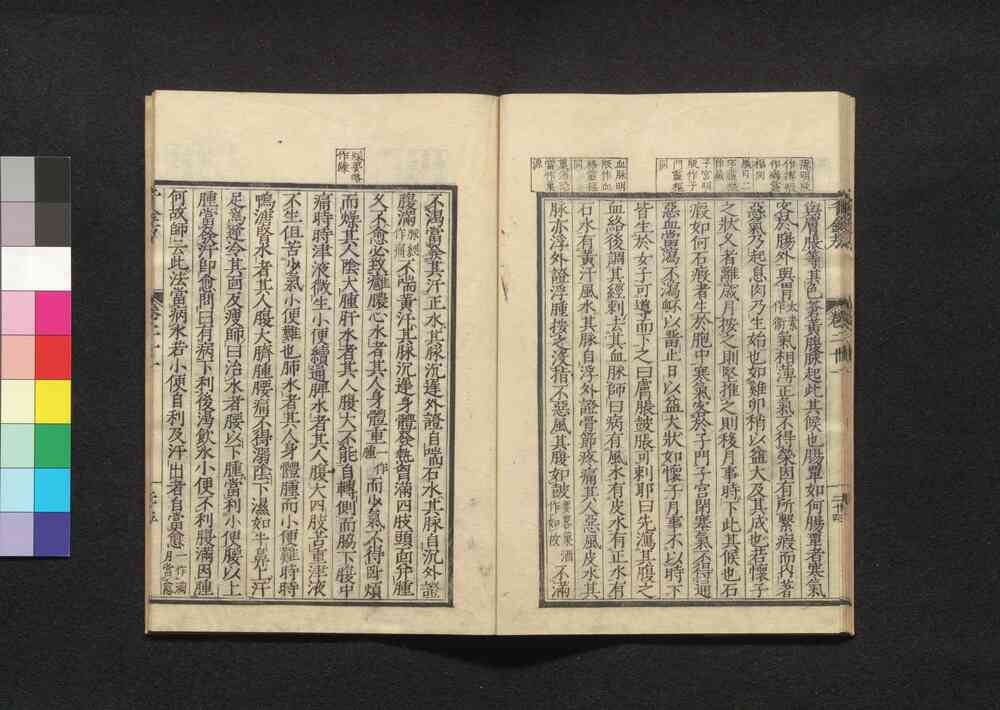 與膚脹等其色蒼黃腹脈起此其候也腸覃如何腸覃者寒氣
客於腸外與胃太素作衛氣相薄正氣不得榮因有所繫瘕而內著
惡氣乃起息肉乃生始也如雞卵稍以益大及其成也若懷子
之狀久者離歲月按之則堅推之則移月事時下此其候也石
瘕如何石瘕者生於胞中寒氣客於子門子宮閉塞氣不得通
惡血當瀉不瀉衃以留止日以益大狀如懷子月事不以時下
皆生於女子可導而下之曰膚脹鼓脹可刺耶曰先瀉其腹之
血絡後調其經刺去其血脈師曰病有風水有皮水有正水有
石水有黃汗風水其脈自浮外證骨節疼痛其人惡風皮水其
脈亦浮外證浮腫按之沒指不惡風其腹如鼓不滿
不渴當發其汗正水其脈沉遲外證自喘石水其脈自沉外證
腹滿脈經作痛不喘黃汗其脈沉遲身體發熱胸滿四肢頭面并腫
久不愈必致癰膿心水者其人身體重一作腫而少氣不得臥煩
而燥其人陰大腫肝水者其人腹大不能自轉側而脇下腹中
痛時時津液微生小便續通脾水者其人腹大四肢苦重津液
不生但苦少氣小便難也肺水者其人身體腫而小便難時時
鴨溏腎水者其人腹大臍腫腰痛不得溺陰下濕如牛鼻上汗
足為逆冷其面反瘦師曰治水者腰以下腫當利小便腰以上
腫當發汗即愈問曰有病下利後渴飲水小便不利腹滿因腫
何故師云此法當病水若小便自利及汗出者自當愈一作滿月當愈